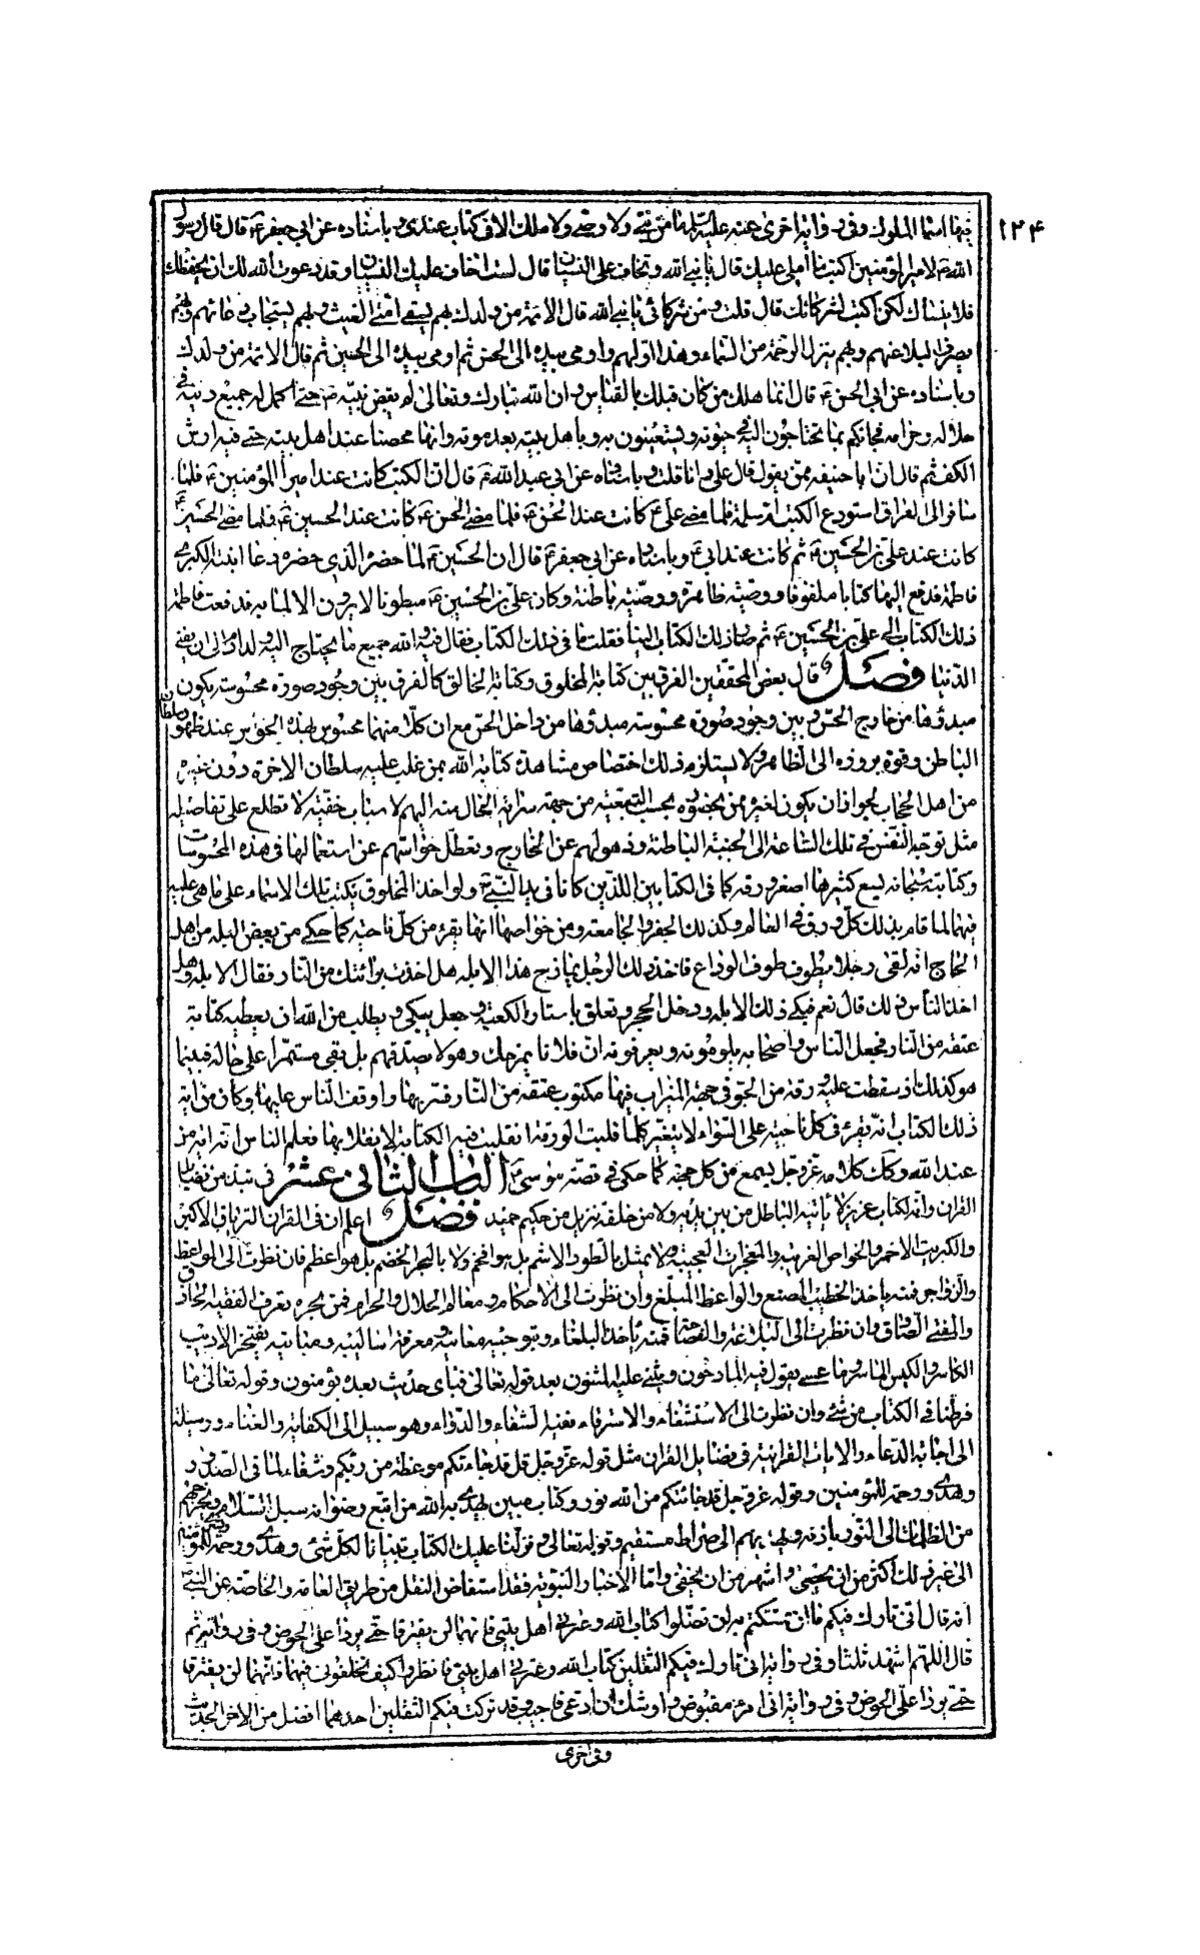 ١٢٤
فيها اسماء الملوك وفى رواية اخرى عنه عليه السلام ما من نبى ولا وصى ولا ملك الا فى كتاب عندى وباسناده عن ابى جعفر ع قال قال رسول
الله ص لامير المؤمنين اكتب ما املى عليك قال يا نبى الله وتخاف على النسيان قال لست اخاف عليك النسيان وقد دعوت الله لك ان يحفظك
فلا ينساك لكن اكتب لشركائك قال قلت ومن شركائى يا نبى الله قال الائمة من ولدك بهم يسقى امتى الغيث وبهم يستجاب دعائهم وبهم
يصرف البلاء عنهم وبهم ينزل الرحمة من السماء وهذا اولهم واومى بيده الى الحسن ثم اومى بيده الى الحسين ثم قال الائمة من ولدك
وباسناده عن ابى الحسن ع قال انما هلك من كان قبلك بالقياس وان الله تبارك وتعالى لم يقبض نبيه ص حتى اكمل له جميع دينه فى
حلاله وحرامه فجائكم بما تحتاجون اليه فى حيوته وتستغيثون به وباهل بيته بعد موته وانها مصحفا عند اهل بيته حتى فيه ارش
الكف ثم قال ان ابا حنيفه ممن يقول قال على وانا قلت وباسناده عن ابى عبد الله ع قال ان الكتب كانت عند امير المؤمنين ع فلما
سافر الى العراق استودع الكتب ام سلمة فلما مضى على ع كانت عند الحسن ع فلما مضى الحسن ع كانت عند الحسين ع فلما مضى الحسين ع
كانت عند على بن الحسين ع ثم كانت عند ابى ع وباسناده عن ابى جعفر ع قال ان الحسين ع لما حضره الذى حضره دعا ابنته الكبرى
فاطمة فدفع اليها كتابا ملفوفا ووصية ظاهرة ووصية باطنة وكان على بن الحسين ع مبطونا لا يرون الا لما به فدفعت فاطمة
ذلك الكتاب الى على بن الحسين ع ثم صار ذلك الكتاب الينا فقلت فما فى ذلك الكتاب فقال فيه والله جميع ما يحتاج اليه ولد ادم الى ان يفنى
الدنيا فصل قال بعض المحققين الفرق بين كتابة المخلوق وكتابة الخالق كالفرق بين وجود صورة محسوسة يكون
مبدؤها من خارج الحس وبين وجود صورة محسوسة مبدؤها من داخل الحس مع ان كلا منهما محسوس بهذه الحواس عند ظهور سلطان
الباطن وقوة بروزه الى الظاهر ولا يستلزم ذلك اختصاص مشاهدة كتابة الله بمن غلب عليه سلطان الاخرة دون غيره
من اهل الحجاب لجواز ان يكون لغيره ممن بحضرته بحسب التبعية من جهة سراية الحال منه اليهم لاسباب خفية لا تطلع على تفاصيله
مثل توجه النفس فى تلك الساعة الى الجنبة الباطنة وذهولهم عن الخارج وتعطل حواسهم عن استعمالها فى هذه المحسوسات
وكتابته سبحانه يسع كثيرها اصغر ورقه كما فى الكتابين اللذين كانا فى يد النبى ص ولو اخذ المخلوق يكتب تلك الاسماء على ما هى عليه
فيهما لما قام بذلك كل ورق فى العالم وكذلك الجفر والجامعة ومن خواصها انها تقرء من كل ناحية كما حكى من بعض البله من اهل
الحاج انه لقى رجلا يطوف طواف الوداع فاخذ ذلك الرجل يمازح هذا الابله هل اخذت برائتك من النار فقال الابله وهل
اخذ الناس ذلك قال نعم فبكى ذلك الابله ودخل الحجر وتعلق باستار الكعبة وجعل يبكى ويطلب من الله ان يعطيه كتابة
عتقه من النار فجعل الناس واصحابه يلومونه ويعرفونه ان فلانا يمزحك وهو لا يصدقهم بل بقى مستمرا على حاله فبينما
هو كذلك اذ سقطت عليه ورقة من الجو فى جهة الميزاب فيها مكتوب عتقه من النار فسر بها واوقف الناس عليها وكان من اية
ذلك الكتاب انه يقرء فى كل ناحية على السواء لا يتغير كلما قلبت الورقة انقلبت فيه الكتابة لانقلابها فعلم الناس انه اية من
عند الله وكك كلامه عز وجل يسمع من كل جهة كما حكى فى قصة موسى ع الباب الثانى عشر فى نبذ من فضايل
القران وانه لكتاب عزيز لا ياتيه الباطل من بين يديه ولا من خلفه تنزيل من حكيم حميد فصل اعلم ان فى القران الترياق الاكبر
والكبريت الاحمر والخواص الغريبة والمعجزات العجيبة ولا يمثل بالطود الاشم بل هو افخم ولا بالبحر الخضم بل هو اعظم فان نظرت الى المواعظ
والزواجر فمنه ياخذ الخطيب المصقع والواعظ المبلغ وان نظرت الى الاحكام ومعالم الحلال والحرام فمن بحره يغرف الفقيه الحاذق
والمفتى الصادق وان نظرت الى البلاغة والفصاحة فمنه ياخذ البلغاء وبتوجيه معانيه ومعرفة اساليبه ومبانيه يفتخر الاديب
الكاسر والكيس الماسر وما عسى يقول فيه المادحون ويثنى عليه المثنون بعد قوله تعالى فباى حديث بعده يؤمنون وقوله تعالى ما
فرطنا فى الكتاب من شئ وان نظرت الى الاستشفاء والاسترقاء ففيه الشفاء والدواء وهو سبيل الى الكفاية والغناء ووسيلة
الى اجابة الدعاء والايات القرانية فى فضايل القران مثل قوله عز وجل قل قد جاءتكم موعظة من ربكم وشفاء لما فى الصدور
وهدى ورحمة للمؤمنين وقوله عز وجل قد جائكم من الله نور وكتاب مبين يهدى به الله من اتبع رضوانه سبل السلام ويخرجهم
من الظلمات الى النور باذنه ويهديهم الى صراط مستقيم وقوله تعالى ونزلنا عليك الكتاب تبيانا لكل شئ وهدى ورحمة وبشرى للمؤمنين
الى غير ذلك اكثر من ان يحصى واشهر من ان يخفى واما الاخبار النبوية فقد استفاض النقل من طريق العامة والخاصة عن النبى ص
انه قال انى تارك فيكم ما ان تمسكتم به لن تضلوا كتاب الله وعترتى اهل بيتى فانهما لن يفترقا حتى يردا على الحوض وفى رواية ثم
قال اللهم اشهد ثلثا وفى رواية انى تارك فيكم الثقلين كتاب الله وعترتى اهل بيتى فانظروا كيف تخلفونى فيهما فانهما لن يفترقا
حتى يردا على الحوض وفى رواية انى امرء مقبوض واوشك ان ادعى فاجيب وقد تركت فيكم الثقلين احدهما افضل من الاخر الحديث
وفى اخرى